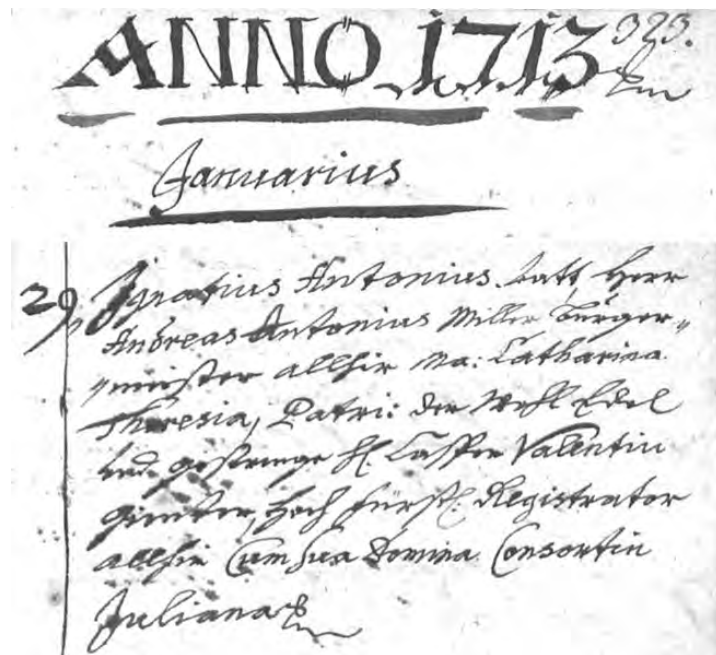 323.
ANNO 1713
Januarius
29 Ignatius Antonius. Vatt. Herr
Andreas Antonius Miller Burger„
„meister allhir Ma: Catharina
Theresia, Patri: der Wohl Edel
und gestrenge H. Casper Valentin
Hoch Fürstl. Registrator
allhir Cum sua Domina Consortin
Juliana